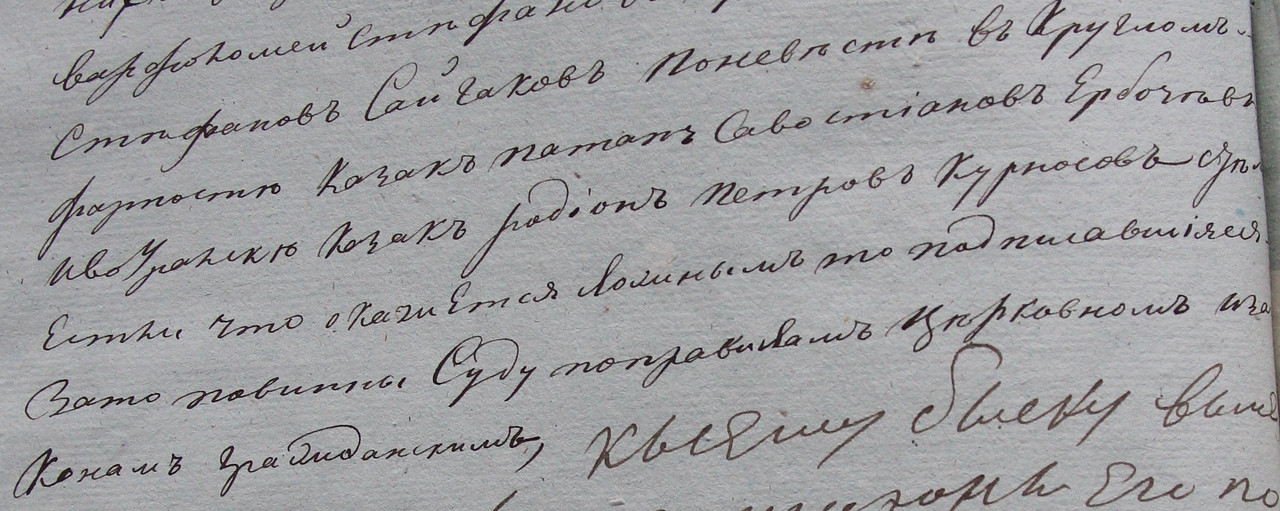 варфоломей Стефано
Стефановъ Сайгаковъ поневесте въ Кругломъ
форпостю Казакъ патапъ Савостіановъ Ербочковъ
иво Уранскю Козакъ родіонъ Петровъ Курносовъ
Естли что окажется ложнымъ то подписавшіяся
Зато повинны Суду поправиламъ Церковномъ иза
Конамъ гражданскимъ, Къ сему обыску
Его по